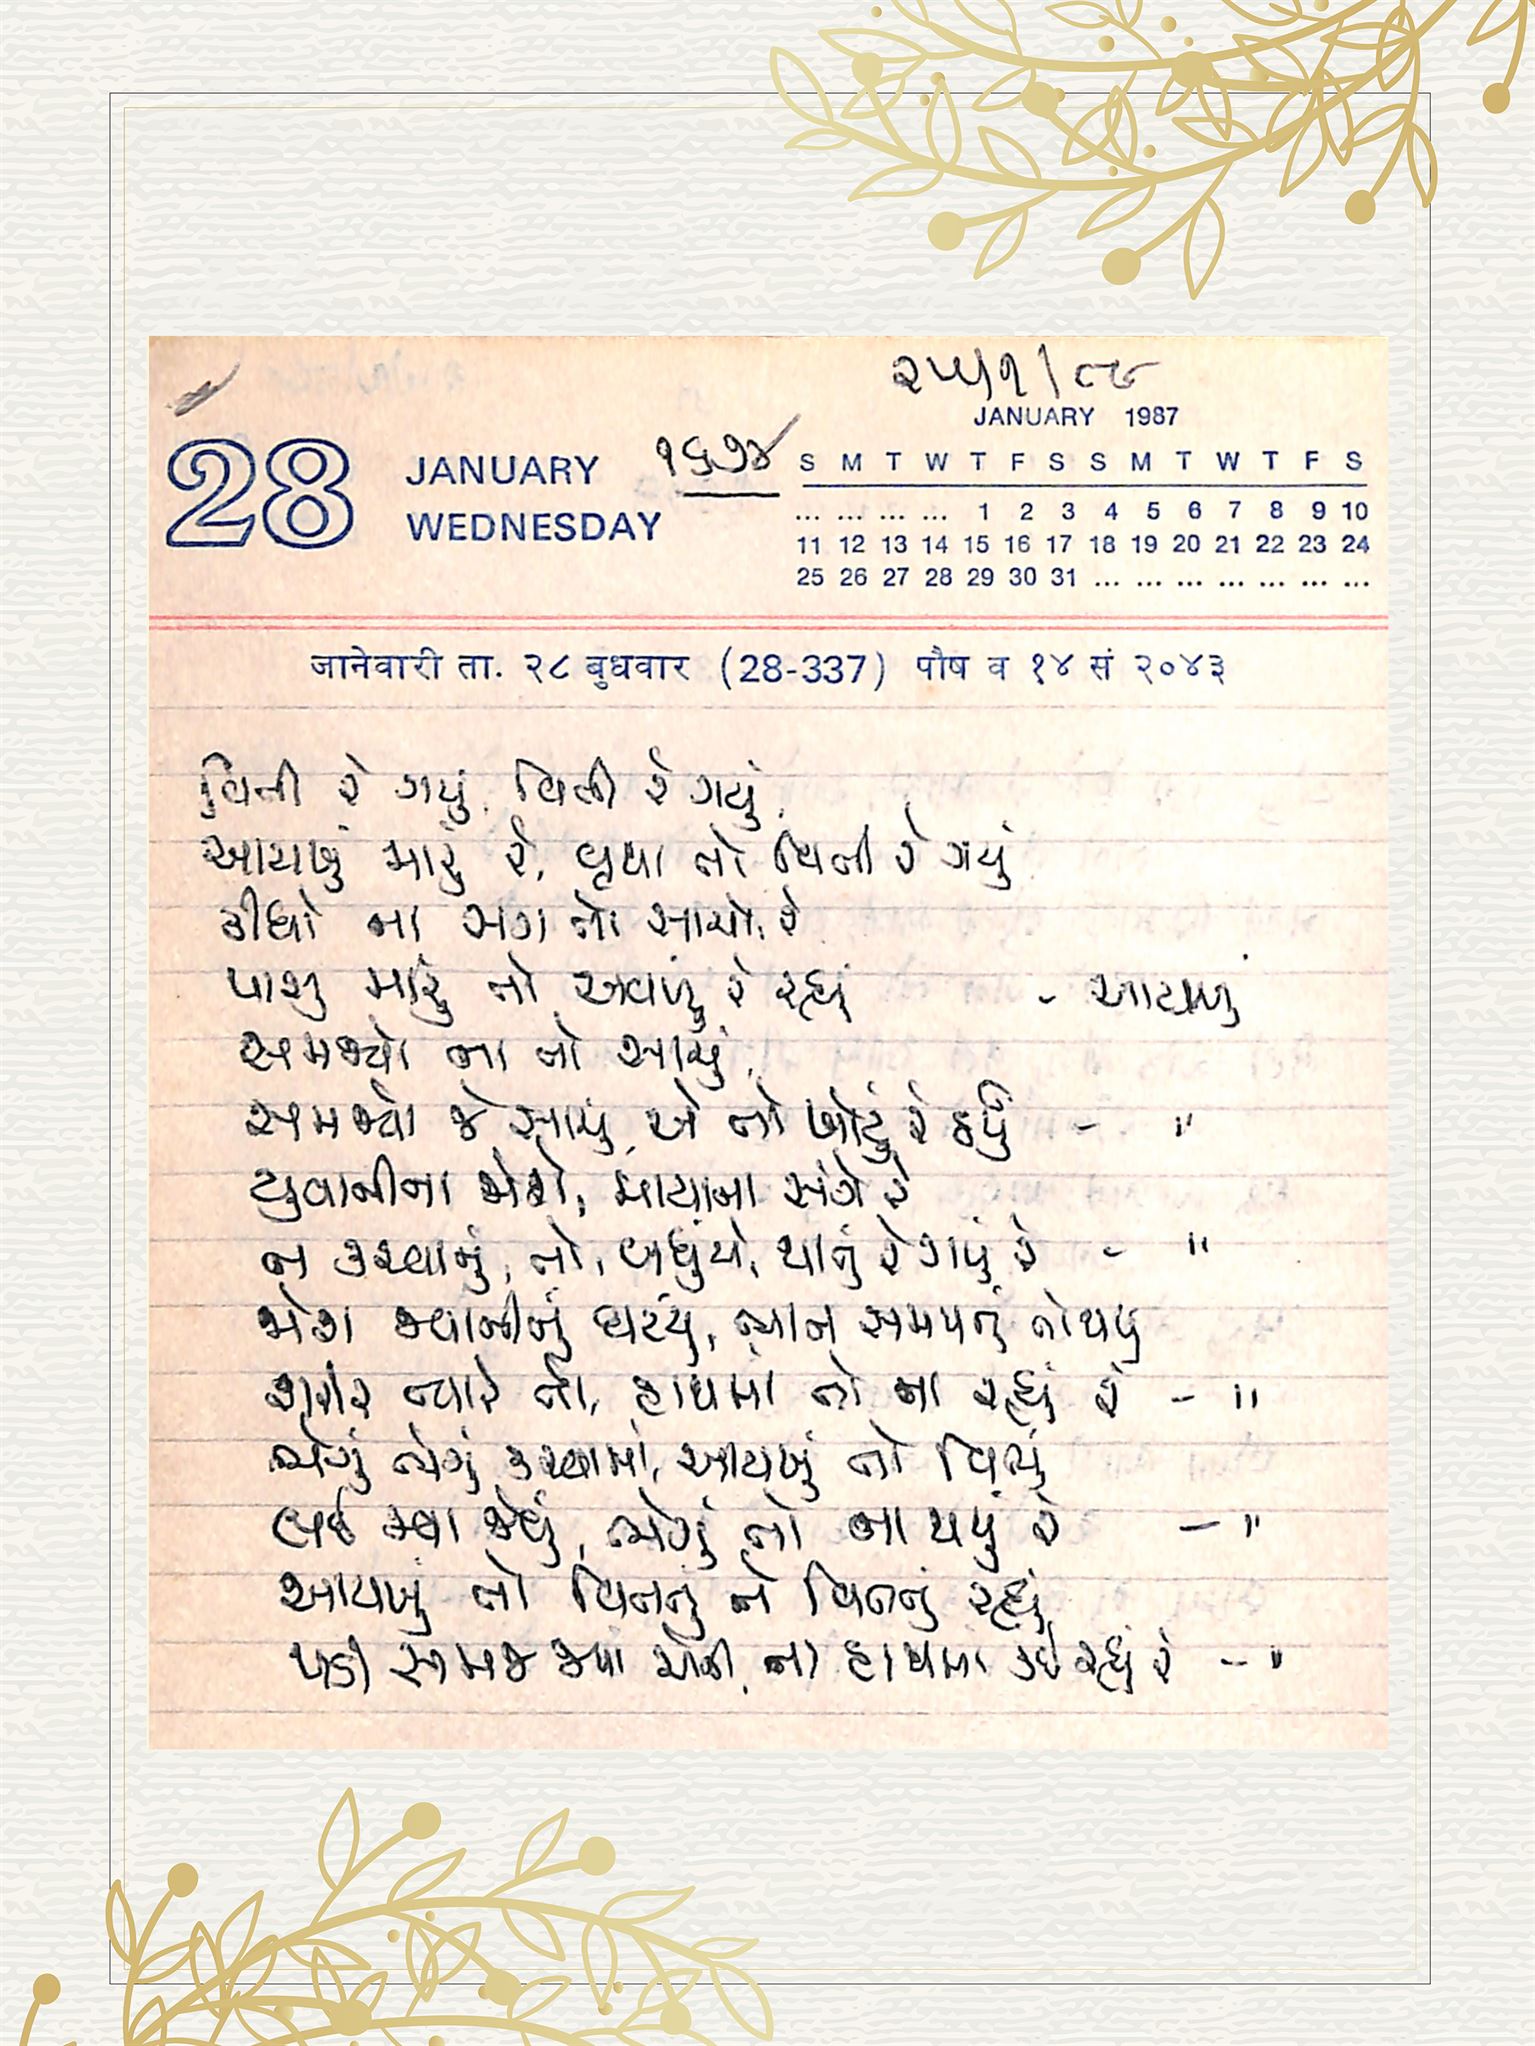 ૨૫/૧/૮૯
JANUARY 1987
28 JANUARY ૧૬૭૪
WEDNESDAY
S M T W T F S S M T W T F S
... ... ... ... 1 2 3 4 5 6 7 8 9 10
11 12 13 14 15 16 17 18 19 20 21 22 23 24
25 26 27 28 29 30 31 ... ... ... ... ... ... ...
जानेवारी ता. २८ बुधवार (28-337) पौष व १४ सं २०४३
વિતી રે ગયું, વિતી રે ગયું,
આયખું મારું રે, વૃથા તો વિતી રે ગયું
કીધો ના સંગ તો સાચો, રે
પાસુ મારું તો અવળું રે રહ્યું - આયખું
સમજ્યો ના તો સાચું,
સમજ્યો જે સાચું, એ તો ખોટું રે ઠર્યું - "
યુવાનીના જોશે, માયાના સંગે રે
ન કરવાનું, તો, બધુંયે, થાતું રે ગયું રે - "
જોશ જ્વાનીનું ઘટયું, ભાન સમયનું તો થયું
શરીર ત્યારે તો, હાથમાં તો ના રહ્યું રે - "
ભેગું ભેગું કરવામાં, આયખું તો વિત્યું
લઈ જવા જેવું, ભેગું તો ના થયું રે - "
આયખું તો વિતતું ને વિતતું રહ્યું
પડી સમજ જ્યાં સાચી, ના હાથમાં કંઈ રહ્યું રે - "